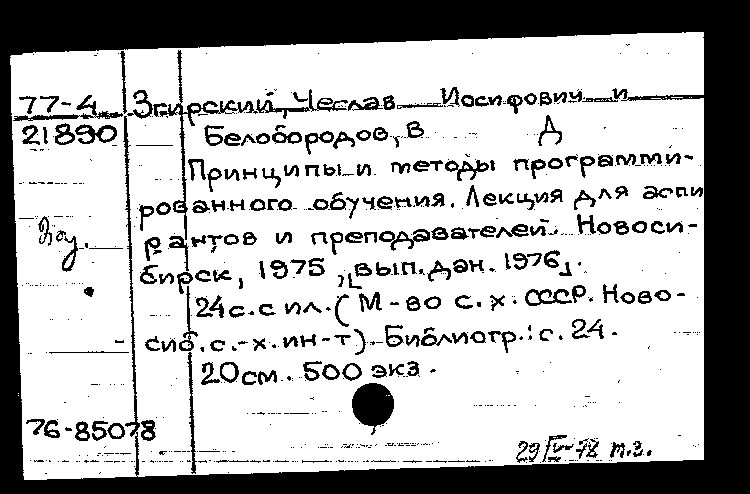 77-4 Згирский, Чеслав Иосифович и
21890 Белобородов, В Д
Принципы и методы программи-
рованного обучения. Лекция для аспи
рантов и преподавателей. Новоси-
бирск, 1975, [вып. дан. 1976].
24 с. с ил. (М-во с. х. СССР. Ново-
сиб. с.-х. ин-т). Библиогр.: с. 24.
20 см. 500 экз.
76-85078
29/IV-78 т.з.